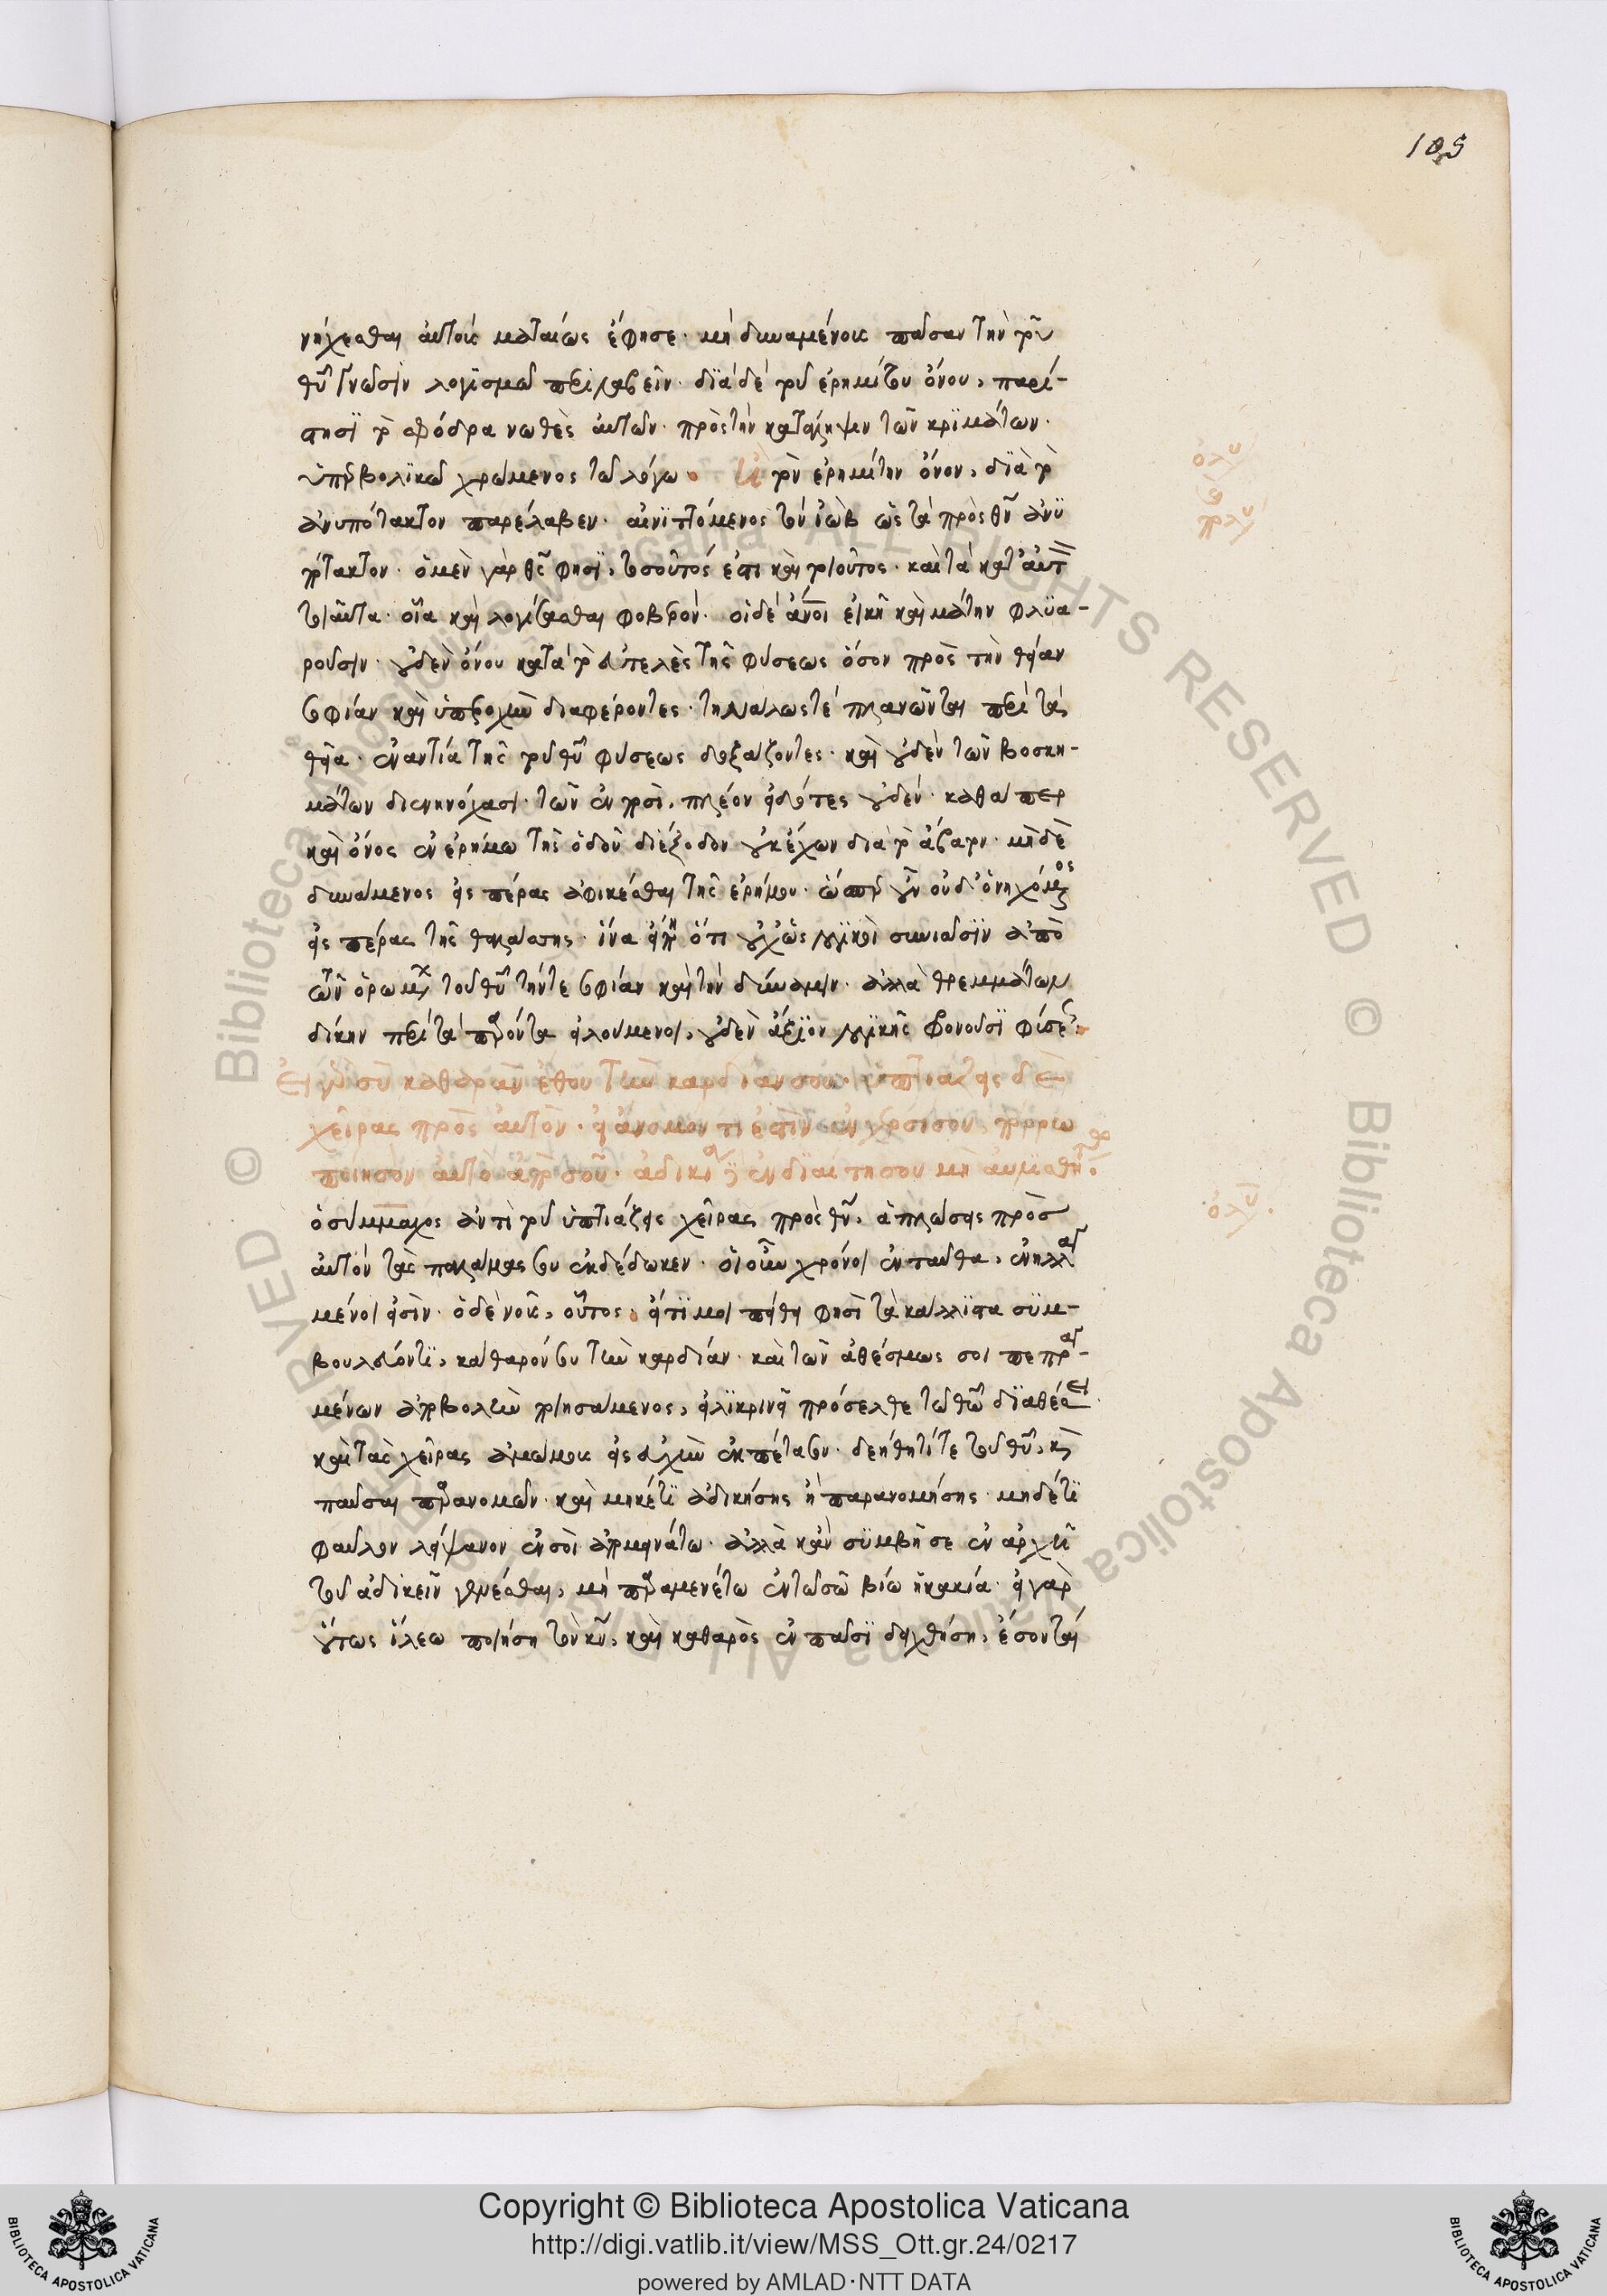 105
νήχεσθαι αὐτοῖς ματαίως ἔφησε· μὴ δυναμένοις πᾶσαν τὴν τοῦ
θῦ γνῶσιν λογισμῶ περιλαβεῖν· διὰ δὲ τοῦ ἐρημίτου ὄνου, παρί-
στησι τὸ σφόδρα νωθὲς αὐτῶν· πρὸς τὴν κατάληψιν τῶν κριμάτων·
ὑπερβολικῶ χρώμενος τῶ λόγω. τὸν ἐρημίτην ὄνον, διὰ τὸ
ἀνυπότακτον παρέλαβεν· αἰνιττόμενος τὸν ἰὼβ ὡς τὰ πρὸς θν ἀνυ
πότακτον· ὁ μὲν γὰρ θς φησι, τοσοῦτός ἐστι καὶ τοιοῦτος· καὶ τὰ κατ αὐτ
τοιαῦτα· οἷα καὶ λογίσασθαι φοβερόν· οἱ δὲ ἄνοι εἰκῆ καὶ μάτην φλυα-
ροῦσιν· οὐδὲν ὄνου κατὰ τὸ εὐτελὲς τῆς φύσεως ὅσον πρὸς τὴν θείαν
σοφίαν καὶ ὑπεροχὴν διαφέροντες· τηνάλλως τε πλανῶνται περὶ τὰ
θεῖα· ἐναντία τῆς τοῦ θῦ φύσεως δοξάζοντες· καὶ οὐδὲν τῶν βοσκη-
μάτων διενηνόχασι· τῶν ἐν ποσὶ, πλέον εἰδότες οὐδέν· καθάπερ
καὶ ὄνος ἐν ἐρήμω τῆς ὁδοῦ διέξοδον οὐκ ἔχων διὰ τὸ ἄβατον· μηδὲ
δυνάμενος εἰς πέρας ἀφικέσθαι τῆς ἐρήμου· ὥσπερ οὖν οὐδ' ὁ νηχόμενος
εἰς πέρας τῆς θαλάσσης· ἵνα εἴπη ὅτι οὐχ ὡς λογικοὶ συνιᾶσιν ἀπὸ
τῶν ὁρωμένων τοῦ θῦ τήν τε σοφίαν καὶ τὴν δύναμιν· ἀλλὰ θρεμμάτων
δίκην περὶ τὰ παρόντα εἰλούμενοι, οὐδὲν ἄξιον λογικῆς φρονοῦσι φύσεως.
Εἰ γὰρ σὺ καθαρὰν ἔθου τὴν καρδίαν σου· ὑπτιάζεις δὲ
χεῖρας πρὸς αὐτόν· εἰ ἄνομόν τι ἐστὶν ἐν χερσί σου, πόρρω
ποίησον αὐτὸ ἀπὸ σοῦ· ἀδικία δὲ ἐν διαίτη σου μὴ αὐλισθήτω.
ὁ σύμμαχος ἀντὶ τοῦ ὑπτιάζεις χεῖρας πρὸς θν, ἁπλώσεις πρὸς
αὐτὸν τὰς παλάμας σου ἐκδέδωκεν· οἱ οὖν χρόνοι ἐνταῦθα, ἐνηλλαγ
μένοι εἰσίν· ὁ δὲ νοῦς, οὗτος. εἴ τι μοι πείθη φησὶ τὰ κάλλιστα συμ-
βουλεύοντι, καθαρόν σου τὴν καρδίαν· καὶ τῶν ἀθέσμως σοι πεπραγ-
μένων ἀποβολὴν ποιησάμενος, εἰλικρινεῖ πρόσελθε τῶ θῶ διαθέσει
καὶ τὰς χεῖρας ἀμώμοις εἰς εὐχὴν ἐκπέτασον· δεήθητί τε τοῦ θῦ, καὶ
παῦσαι παρανομῶν· καὶ μηκέτι ἀδικήσης ἢ παρανομήσης· μηδέ τι
φαῦλον λείψανον ἐν σοὶ ἀπομεινάτω· ἀλλὰ κἂν συμβῆ σε ἐν ἀρχῆ
τοῦ ἀδικεῖν γενέσθαι, μὴ παραμενέτω ἐν τῶ σῶ βίω ἡ κακία· εἰ γὰρ
οὕτως ἵλεω ποιήση τὸν κν, καὶ καθαρὸς ἐν πᾶσι δειχθήση, ἔσονται
Copyright © Biblioteca Apostolica Vaticana
http://digi.vatlib.it/view/MSS_Ott.gr.24/0217
powered by AMLAD·NTT DATA